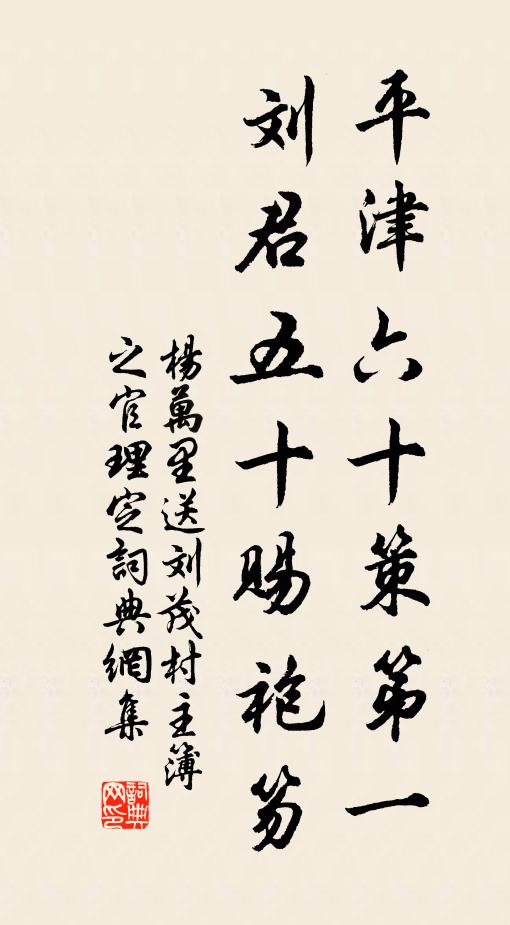 平津六十策第一
刘君五十賜袍笏
楊萬里送刘茂村主簿
之官理定詞典網集
詞典网印